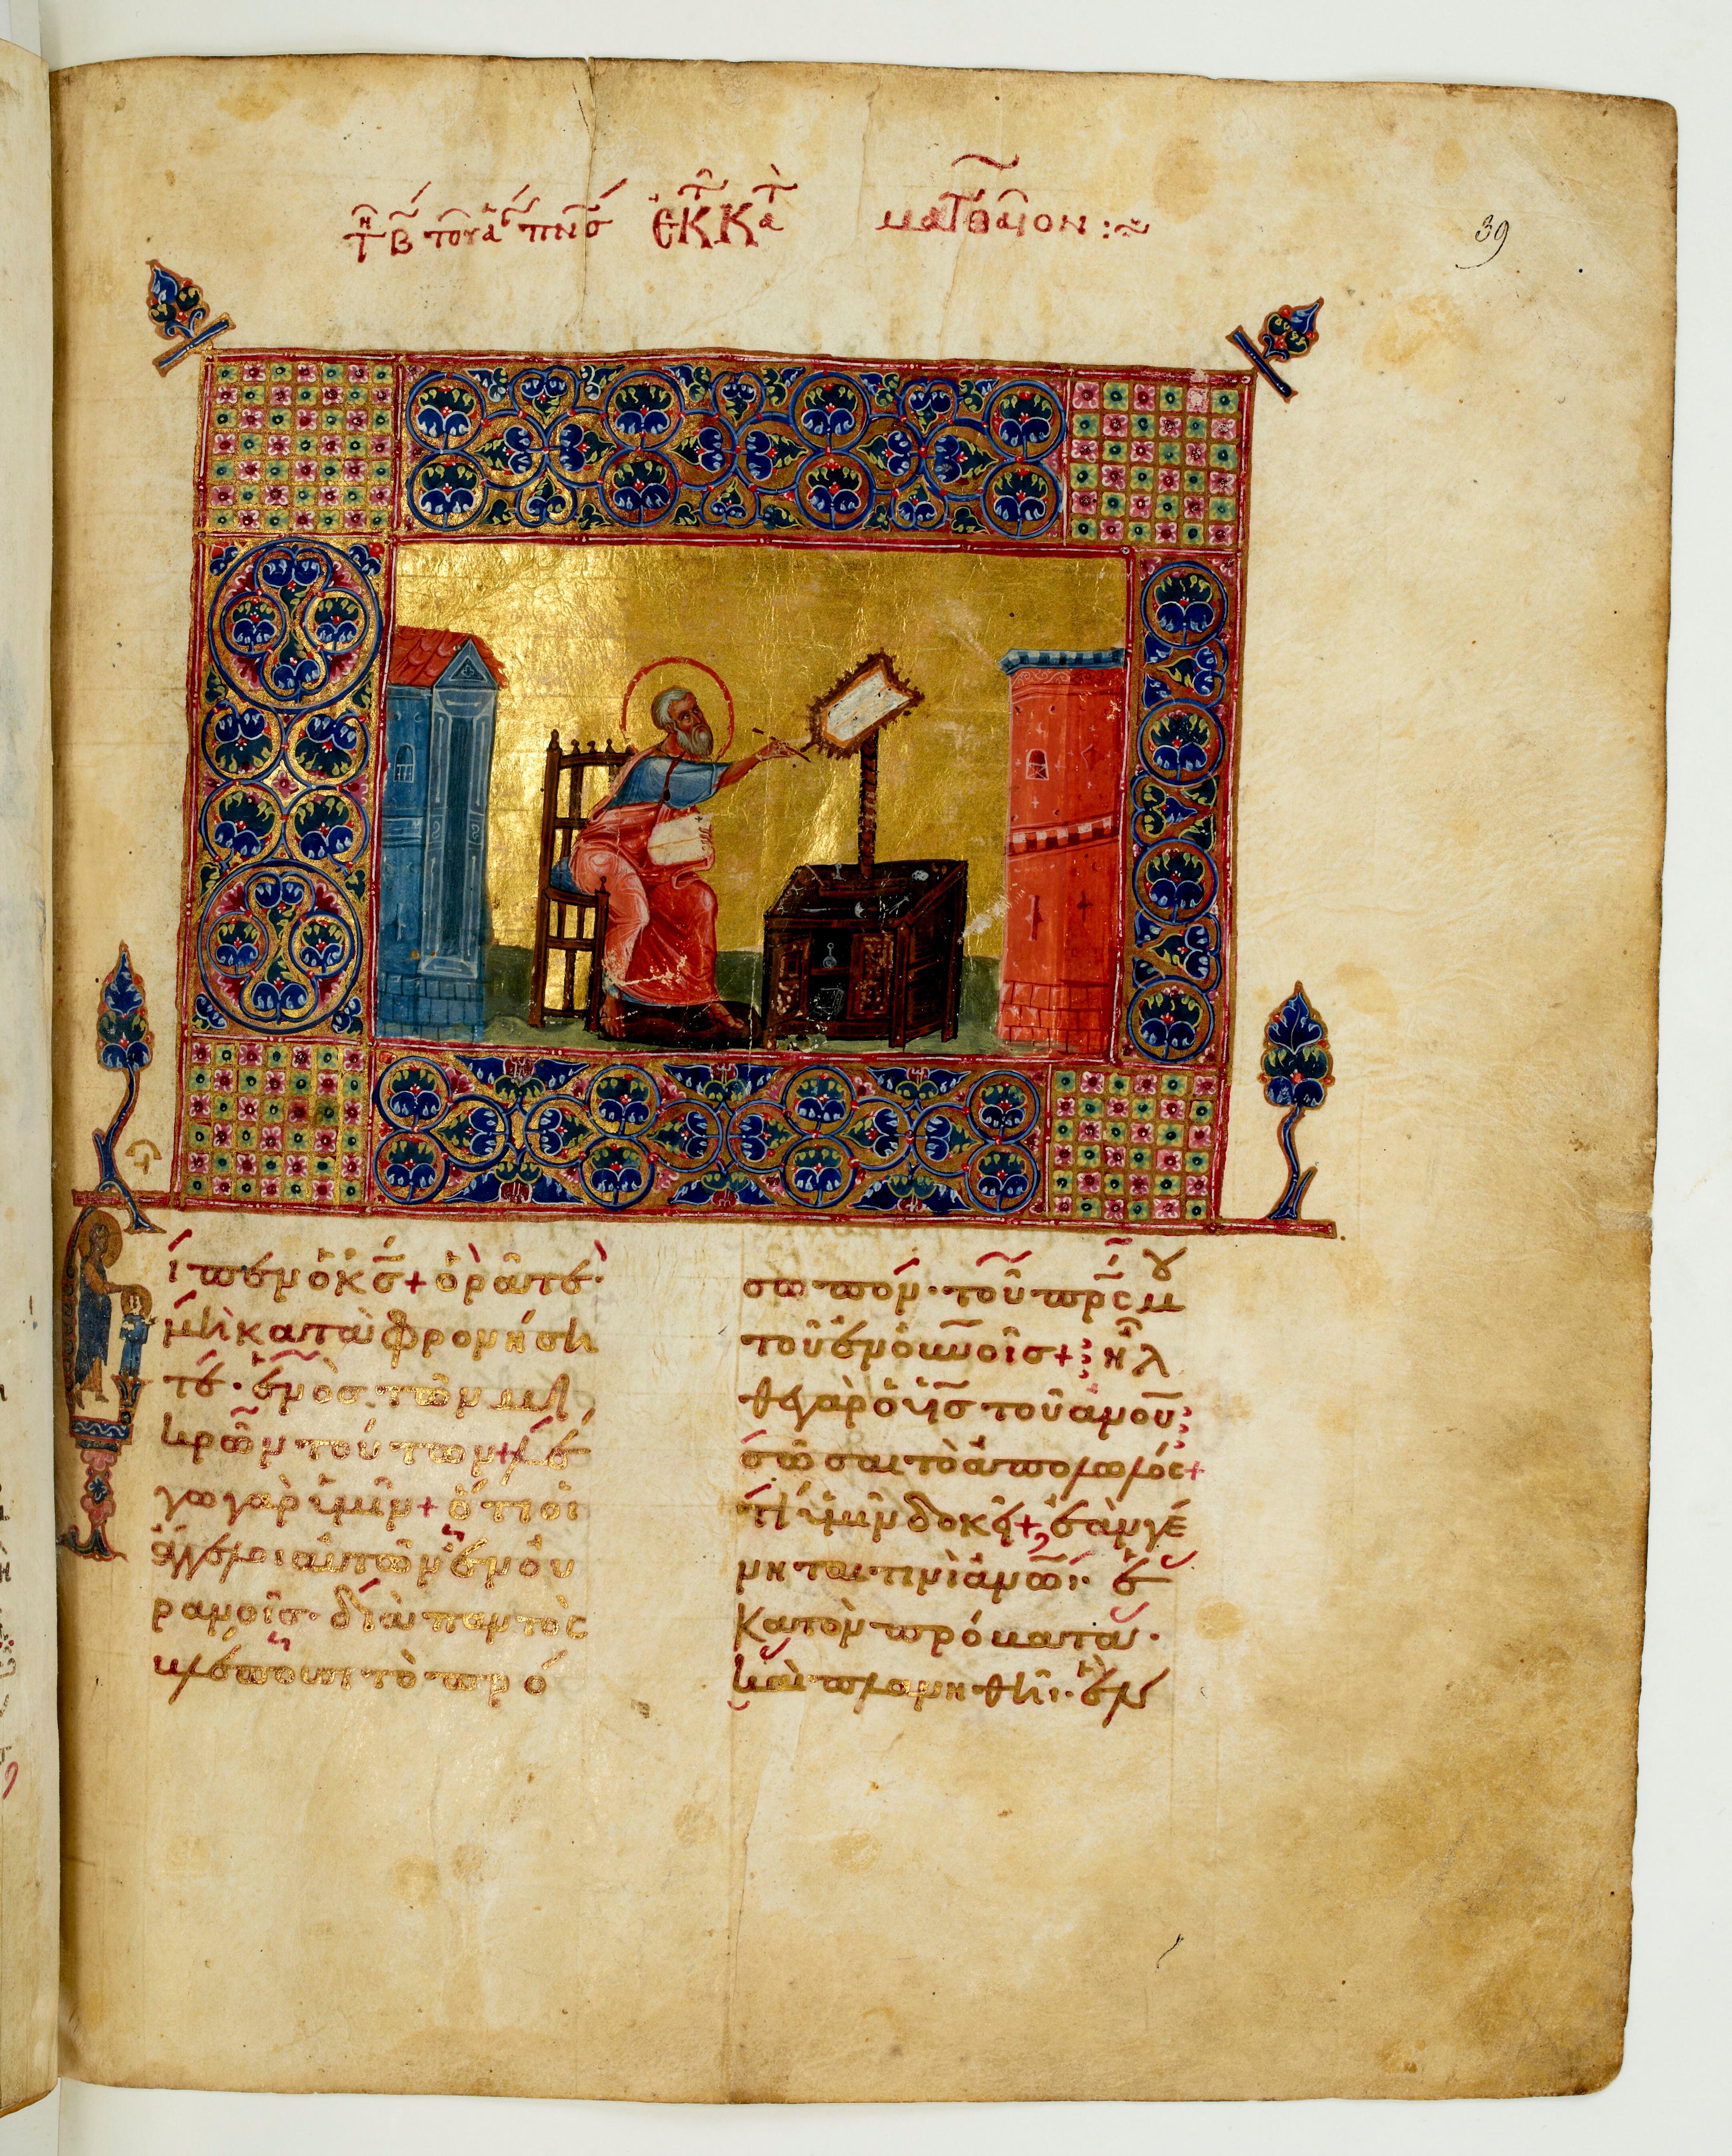 τῇ β τοῦ ἁ πνσ ἐκ τ κατ ματθαῖον :~
39
Εἶπεν ὁ κς + ὁρᾶτε·
μὴ καταφρονήση
τε· ἑνὸς τῶν μι
κρῶν τούτων + λέ
γω γὰρ ὑμῖν + ὅτι οἱ
ἄγγελοι αὐτῶν ἐν οὐ
ρανοῖς· διὰ παντὸς
βλέπουσι τὸ πρό
σωπον· τοῦ πρς μου
τοῦ ἐν οὐνοῖς + ἦλ
θε γὰρ ὁ υἱς τοῦ ανου
σῶσαι τὸ ἀπολωλός +
τί ὑμῖν δοκεῖ + ἐὰν γέ
νηται τινὶ ανωι· ἑ
κατὸν πρόβατα·
καὶ πλανηθῆι· ἓν